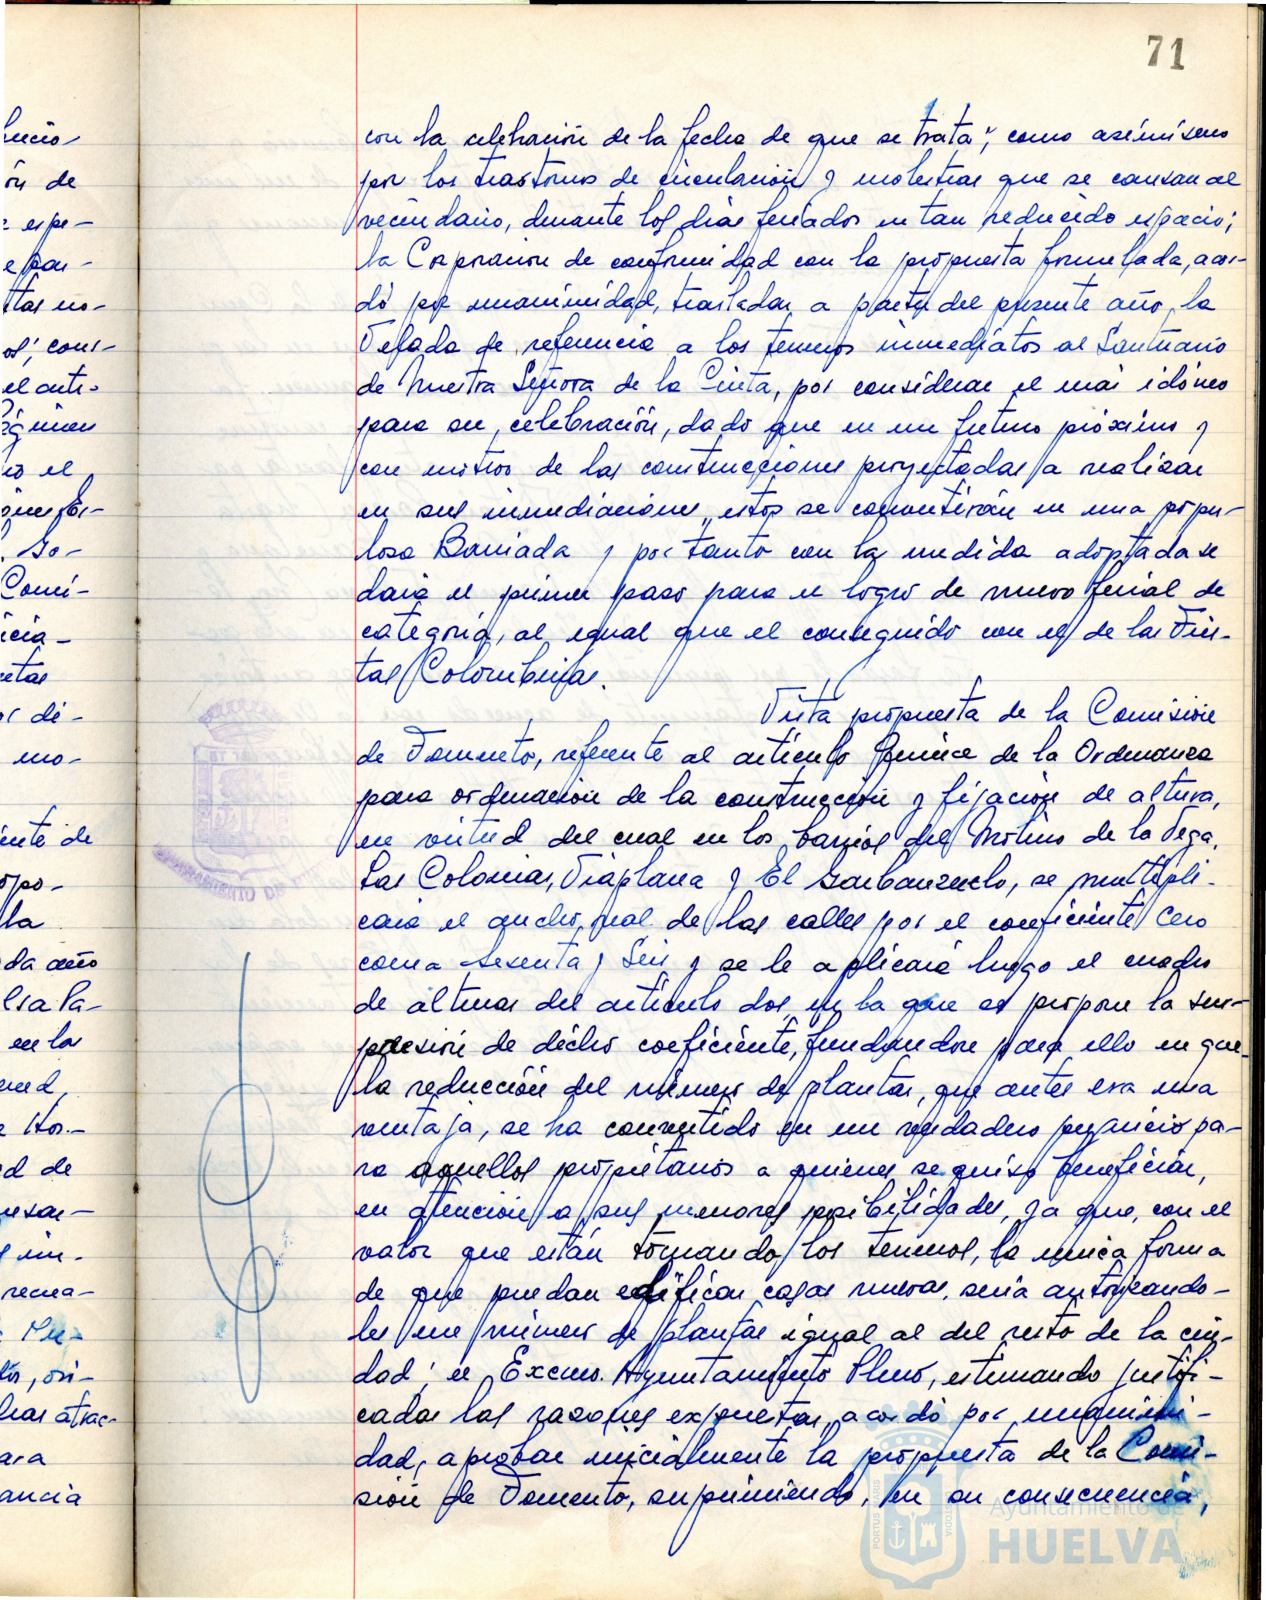 71
con la celebración de la fecha de que se trata; como asímismo
por los trastornos de circulación y molestias que se causan al
vecindario, durante los días feriados en tan reducido espacio;
la Corporación de conformidad con la propuesta formulada, acor-
dó por unanimidad, trasladar, a partir del presente año, la
Velada de referencia a los terrenos inmediatos al Santuario
de Nuestra Señora de la Cinta, por considerar el más idóneo
para su celebración, dado que en un futuro próximo y
con motivo de las construcciones proyectadas a realizar
en sus inmediaciones, estos se convertirán en una popu-
losa Barriada y por tanto con la medida adoptada se
daria el primer paso para el logro de nuevo ferial de
categoria, al igual que el conseguido con el de las Fies-
tas Colombinas.
Vista propuesta de la Comisión
de Fomento, referente al artículo Quince de la Ordenanza
para ordenación de la construcción y fijación de altura,
en virtud del cual en los barrios del Molino de la Vega,
Las Colonias, Viaplana y El Garbanzuelo, se multipli-
cará el ancho real de las calles por el coeficiente Cero
coma Sesenta y Seis y se le aplicará luego el cuadro
de alturas del artículo dos, en la que se propone la sus-
presión de dicho coeficiente, fundandose para ello en que
la reducción del número de plantas, que antes era una
ventaja, se ha convertido en un verdadero perjuicio pa-
ra aquellos propietarios a quienes se quiso beneficiar,
en atención a sus menores posibilidades, ya que, con el
valor que están tomando los terrenos, la unica forma
de que puedan edificar casas nuevas, sería autorizando-
les un número de plantas igual al del resto de la ciu-
dad; el Excmo. Ayuntamiento Pleno, estimando justifi-
cadas las razones expuestas, acordó por unanimi-
dad, aprobar inicialmente la propuesta de la Comi-
sión de Fomento, suprimiendo, en su consecuencia,
Ayuntamiento de
HUELVA